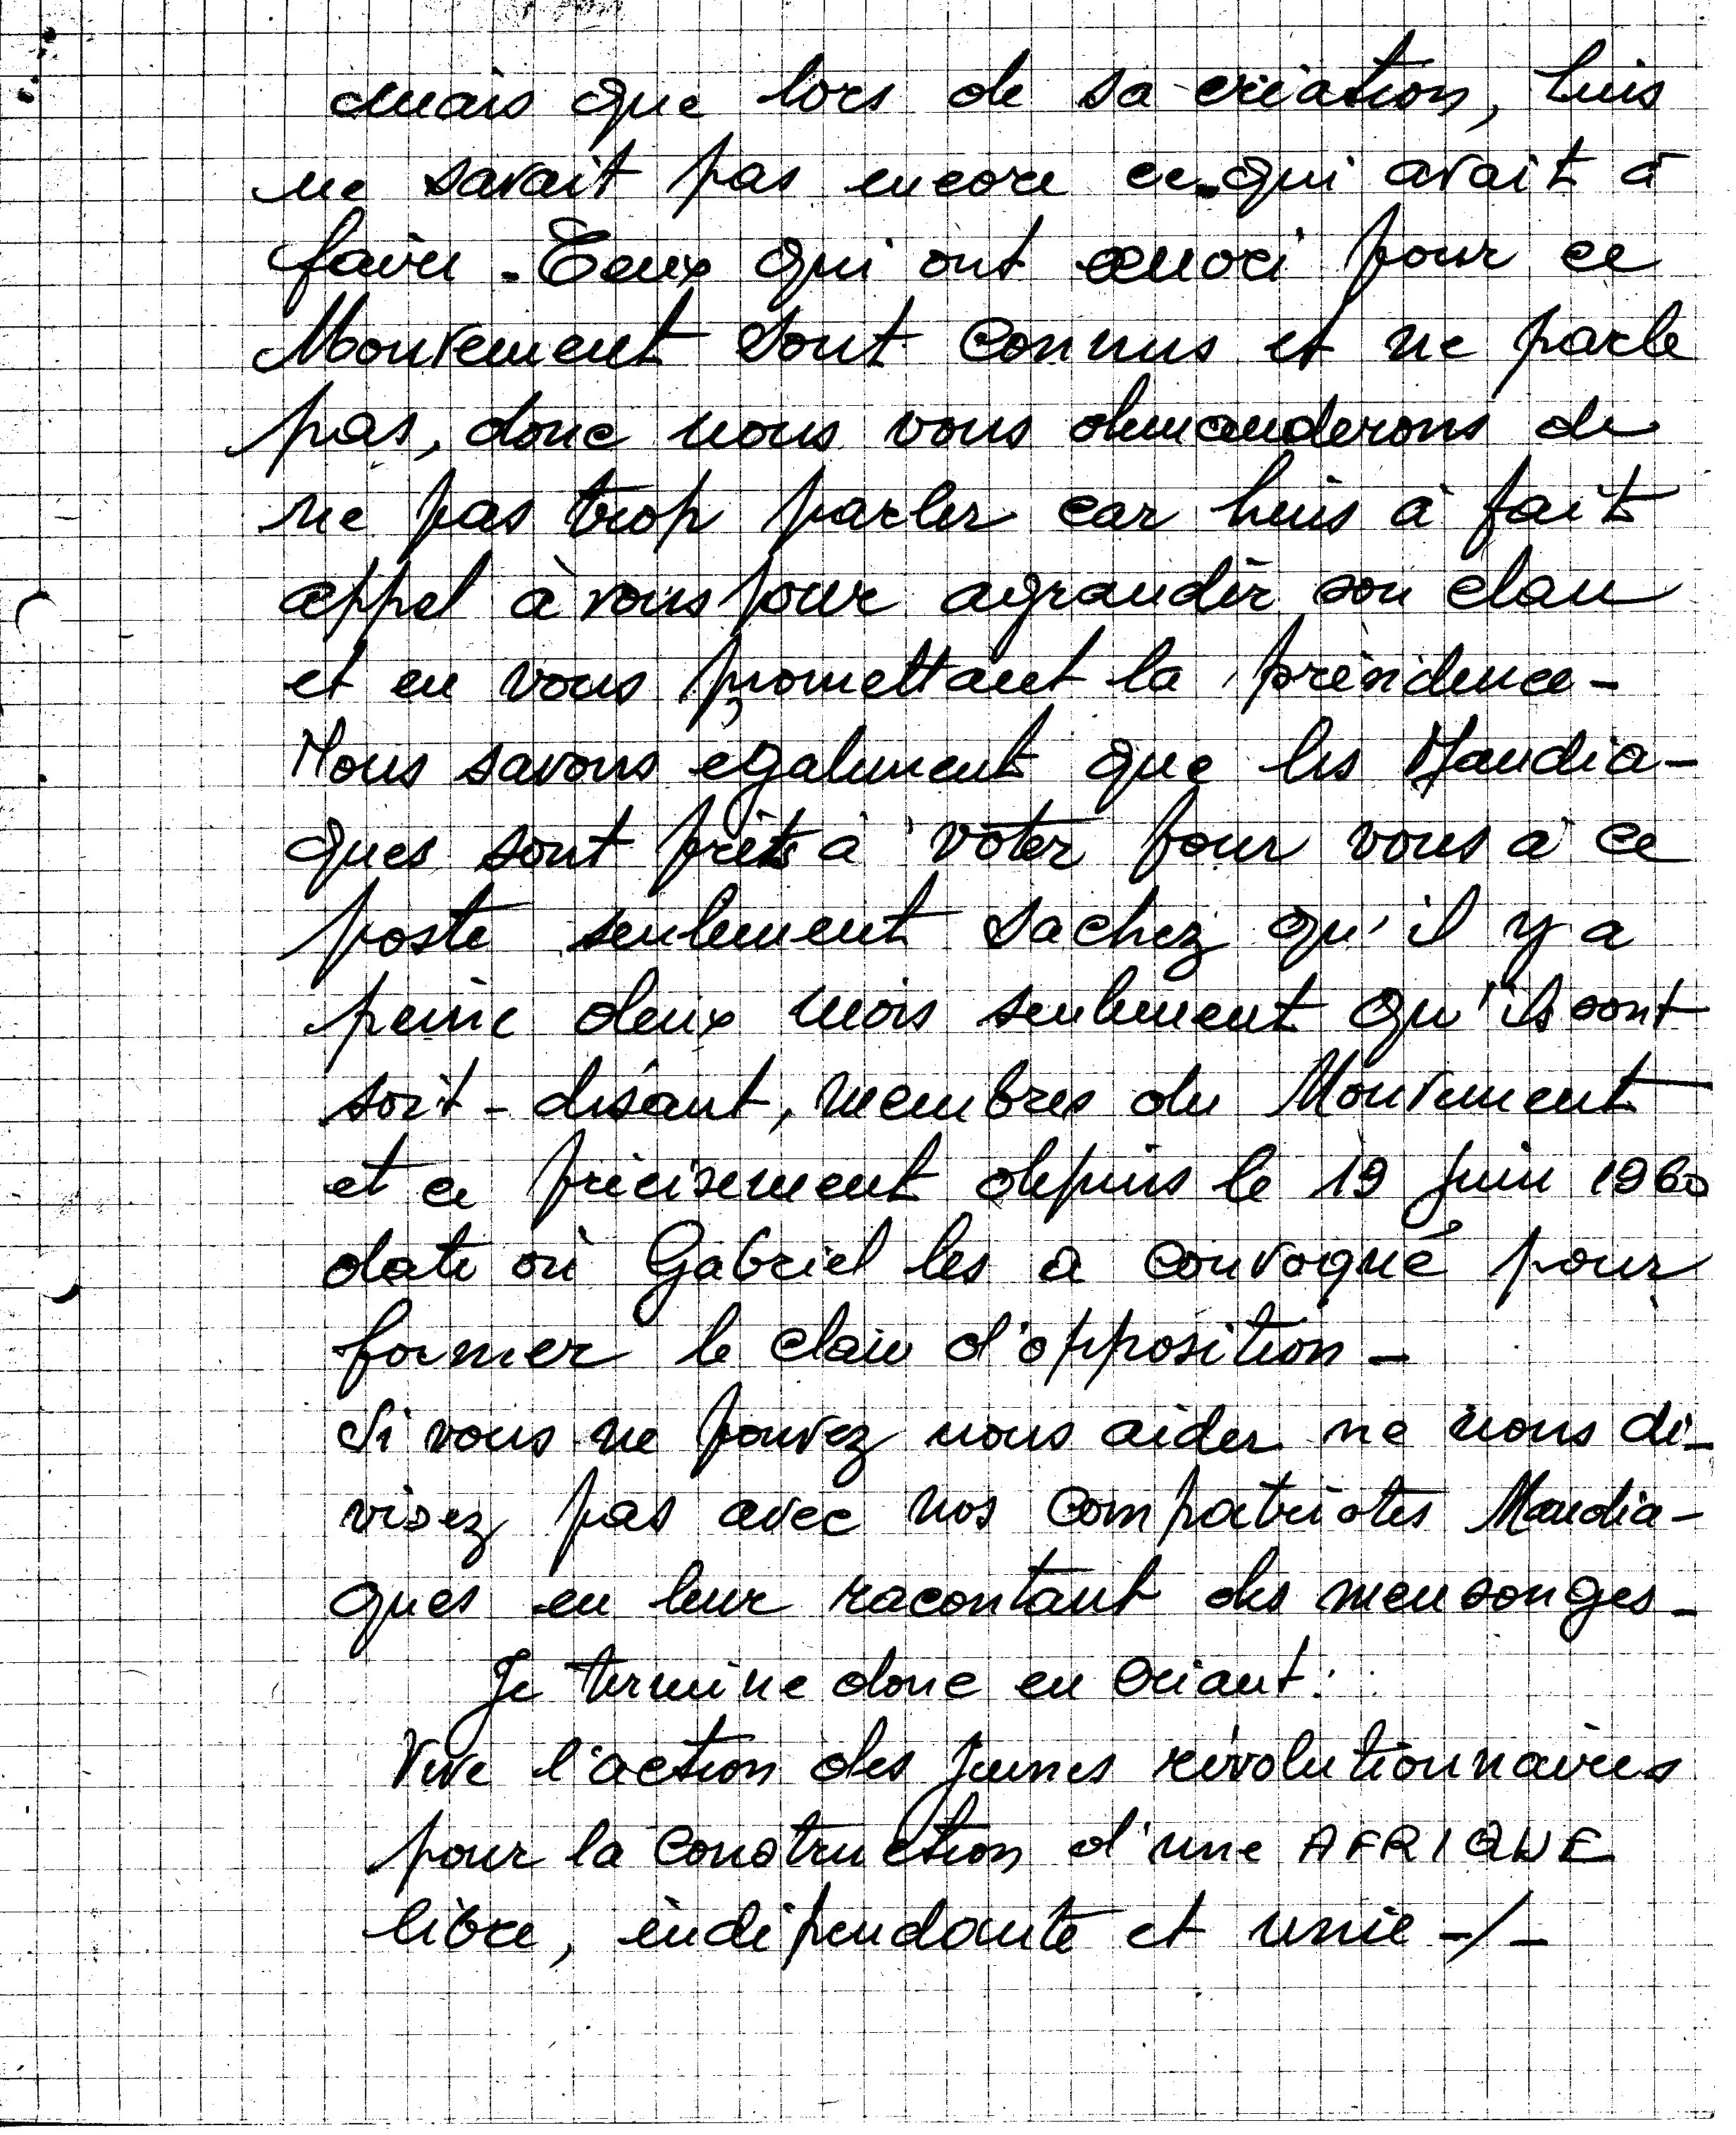 mais que lors de sa création, Luis
ne savait pas encore ce qui avait à
faire. Ceux qui ont œuvré pour ce
Mouvement sont connus et ne parle
pas, donc nous vous demanderons de
ne pas trop parler car Luis à fait
appel à vous pour agrandir son clan
et en vous promettant la présidence -
Nous savons également que les Mandia-
ques sont prêts à voter pour vous à ce
poste seulement sachez qu'il y a
peine deux mois seulement qu'ils sont
soit-disant, membres du Mouvement
et ce précisement depuis le 19 juin 1960
date où Gabriel les a convoqué pour
former le clan d'opposition -
Si vous ne pouvez nous aider ne nous di-
visez pas avec nos compatriotes Mandia-
ques en leur racontant des mensonges -
Je termine donc en criant :
Vive l'action des jeunes révolutionnaires
pour la construction d'une AFRIQUE
libre, indépendante et unie -/-